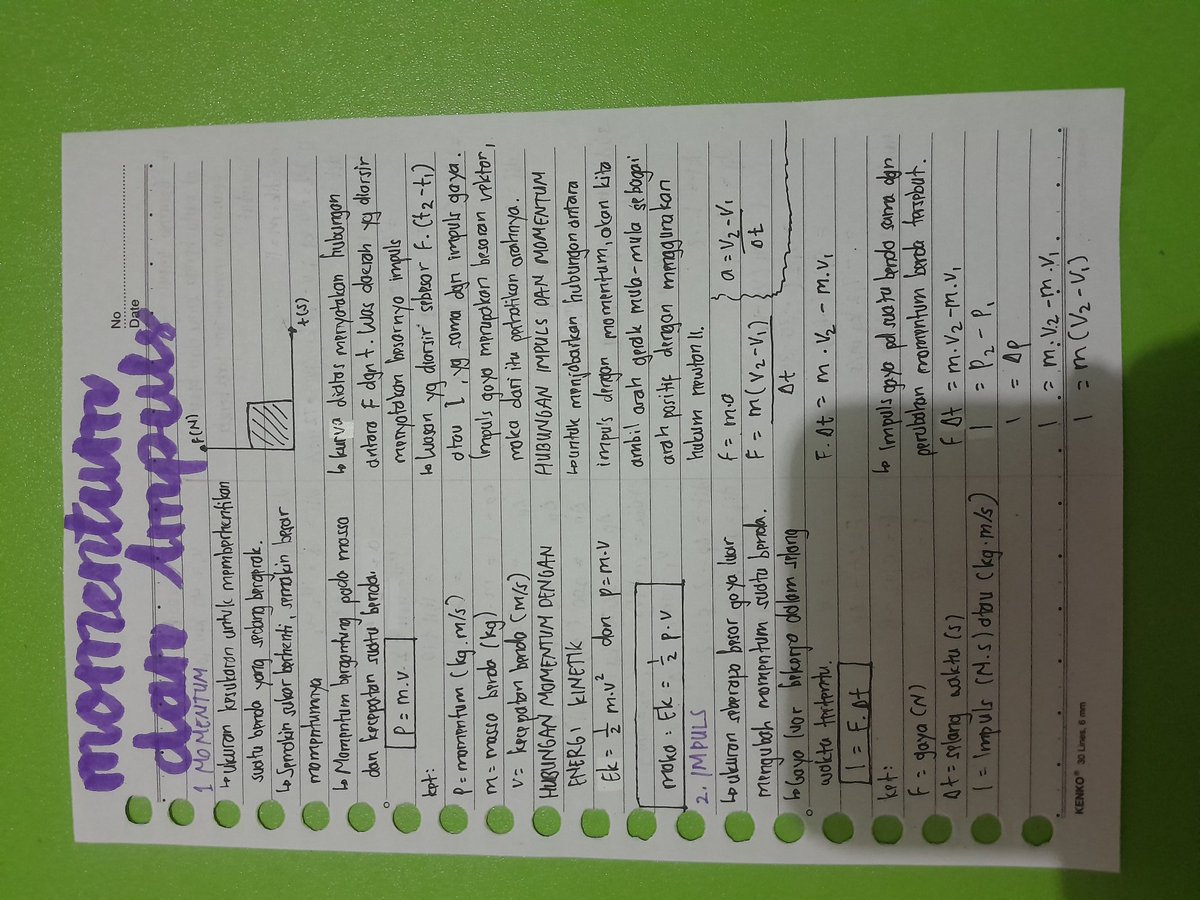 No
Date
momentum
dan impuls
1 MOMENTUM
↳ Ukuran kesukaran untuk memberhentikan
suatu benda yang sedang bergerak.
↳ Semakin sukar berhenti, semakin besar
momentumnya
↳ Momentum bergantung pada massa
dan kecepatan suatu benda.
P = m.v
ket:
p = momentum (kg.m/s)
m = massa benda (kg)
v = kecepatan benda (m/s)
HUBUNGAN MOMENTUM DENGAN
ENERGI KINETIK
Ek = 1/2 m.v² dan p=m.v
maka : Ek = 1/2 p.v
2. IMPULS
↳ ukuran seberapa besar gaya luar
mengubah momentum suatu benda.
↳ Gaya luar bekerja dalam selang
waktu tertentu.
I = F.Δt
ket:
F = gaya (N)
Δt = selang waktu (s)
I = Impuls (N.s) atau (kg.m/s)
F(N)
t(s)
↳ kurva diatas menyatakan hubungan
antara F dgn t. Luas daerah yg diarsir
menyatakan besarnya impuls
↳ Luasan yg diarsir sebesar F.(t₂-t₁)
atau I, yg sama dgn impuls gaya.
Impuls gaya merupakan besaran vektor,
maka dari itu perhatikan arahnya.
HUBUNGAN IMPULS DAN MOMENTUM
↳ untuk menjabarkan hubungan antara
impuls dengan momentum, akan kita
ambil arah gerak mula-mula sebagai
arah positif dengan menggunakan
hukum newton II.
F = m.a } a = V₂-V₁/Δt
F = m(V₂-V₁)/Δt
F.Δt = m.V₂ - m.V₁
↳ Impuls gaya pd suatu benda sama dgn
perubahan momentum benda tersebut.
F Δt = m.V₂-m.V₁
I = P₂ - P₁
I = ΔP
I = m.V₂-m.V₁
I = m(V₂-V₁)
KENKO® 30 Lines, 6 mm